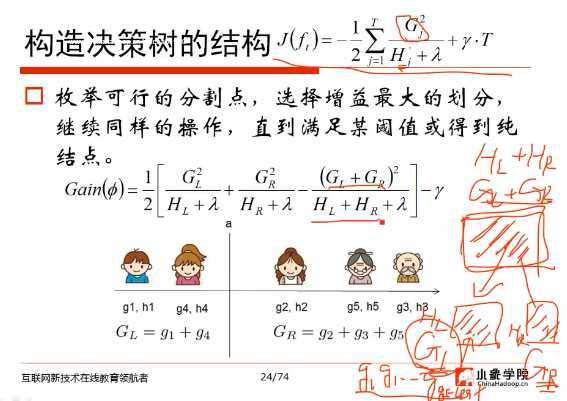 构造决策树的结构 J(f_t) = -\frac{1}{2}\sum_{j=1}^{T}\frac{G_j^2}{H_j+λ} + γ·T
枚举可行的分割点，选择增益最大的划分，
继续同样的操作，直到满足某阈值或得到纯
结点。
Gain(ϕ) = \frac{1}{2}\left[\frac{G_L^2}{H_L+λ} + \frac{G_R^2}{H_R+λ} - \frac{(G_L+G_R)^2}{H_L+H_R+λ}\right] - γ
H_L + H_R
G_L + G_R
a
g1, h1 g4, h4 g2, h2 g5, h5 g3, h3
G_L = g_1 + g_4 G_R = g_2 + g_3 + g_5
H_L H_R
G_L G_R
g_1 g_1 ...
互联网新技术在线教育领航者 24/74 小象学院
ChinaHadoop.cn